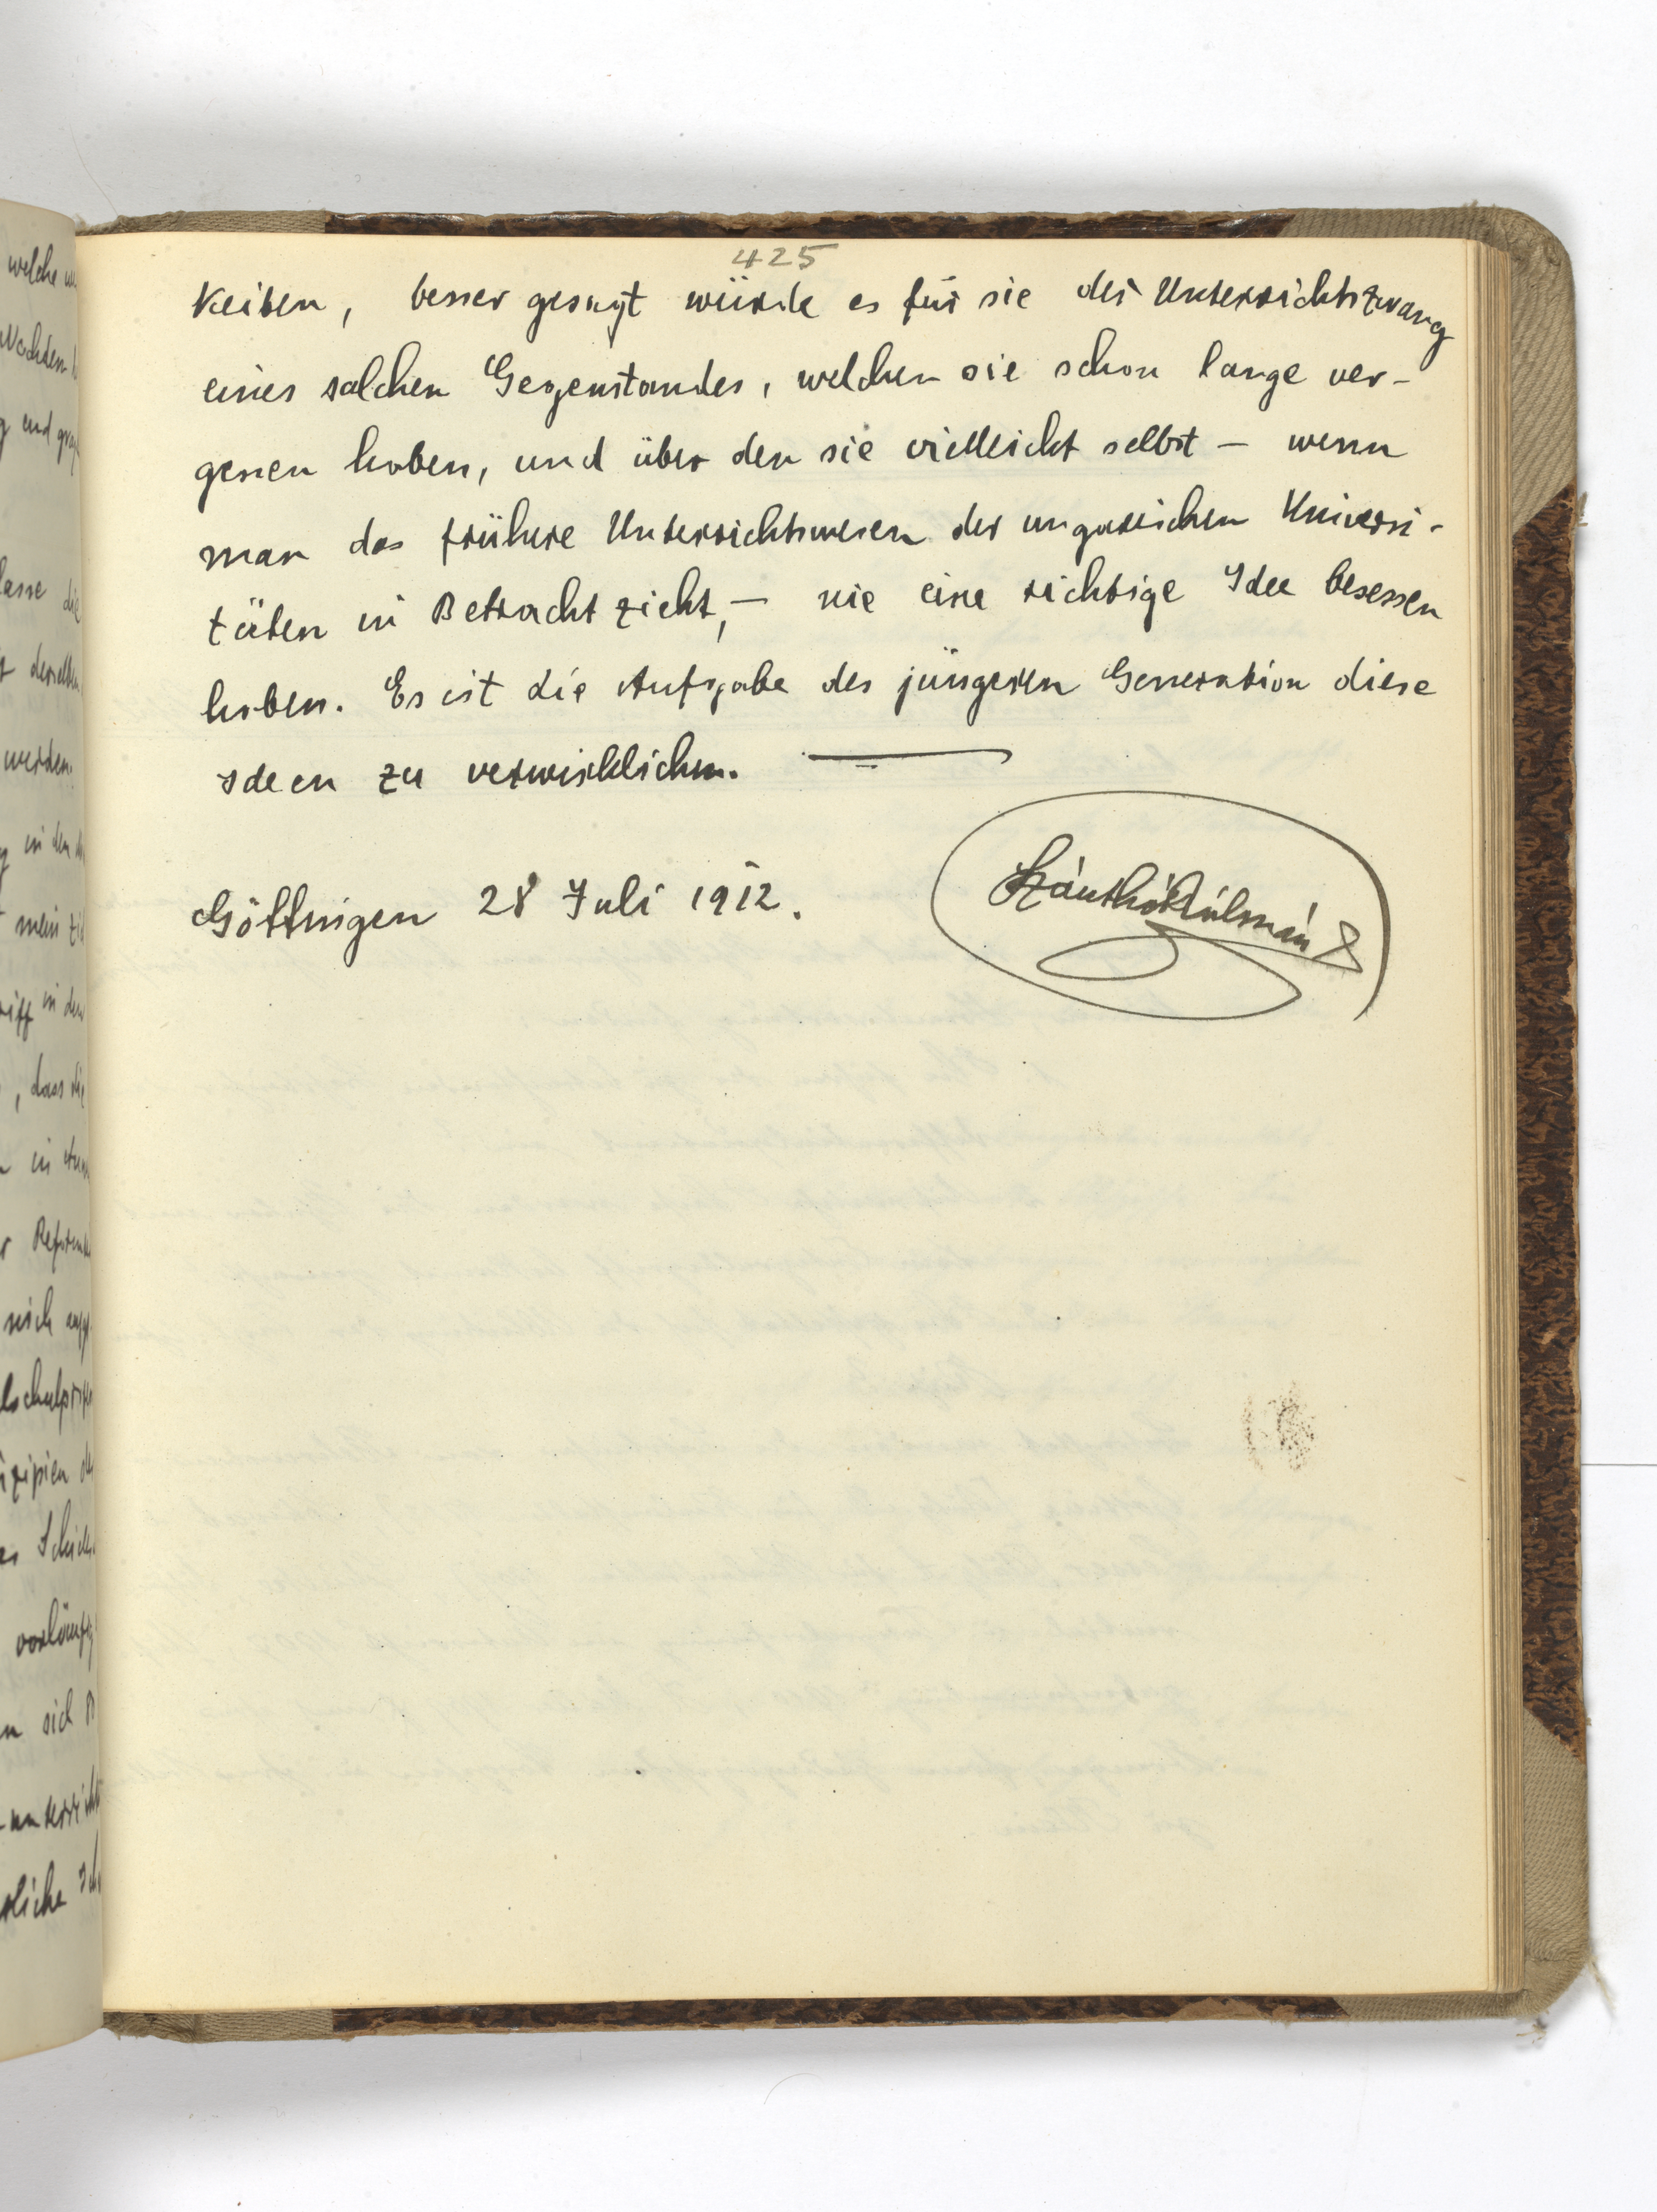 425
keiten, besser gesagt würde es für sie der Unterrichtszwang
eines solchen Gegenstandes, welchen sie schon lange ver-
gessen haben, und über den sie vielleicht selbst – wenn
man das frühere Unterrichtswesen der ungarischen Universi-
täten in Betracht zieht, – nie eine richtige Idee besessen
haben. Es ist die Aufgabe der jüngeren Generation diese
Ideen zu verwirklichen. —
Göttingen 28 Juli 1912.
Szánthó Kálmán
welche
Wochten
und
lasse die
derselben
werden.
in den
mein
in den
, dass die
in
Reform
sich
vorläufig
sich
unterricht